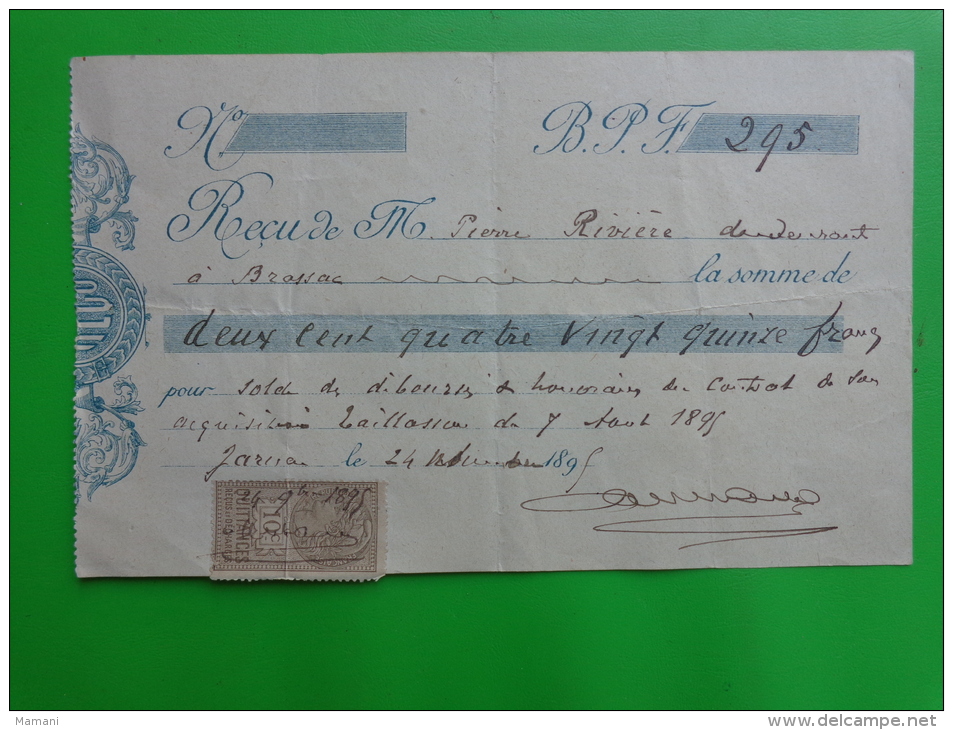 No B.P.F. 295
Reçu de M. Pierre Rivière demeurant
à Brassac la somme de
deux cent quatre vingt quinze francs
pour solde de débours & honoraires du contrat de son
acquisition Taillasson du 7 Août 1895
Jarnac le 24 1895
24 9bre 1895
QUITTANCES
REÇUS & DÉCHARGES
10c
Mamani
www.delcampe.net